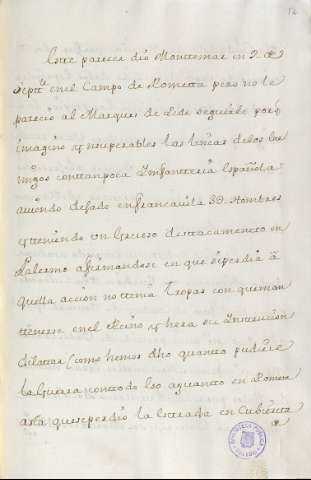 12
Este parecer dio Montemar en 2 de
Septe. en el Campo de Rometta pero no le
pareció al Marques de Lede seguirle pors
imagino ynsuperables las lineas delos En
migos con tan poca Ynfanteria española
aviendo dejado en francavila 3D. Hombres
y teniendo un Grueso destacamento en
Palermo afirmandose en que si perdia a
quella accion no tenia Tropas con que man
tenerse en el Reino y hera su Ynstrucion
dilattar (como hemos dho quanto pudiese
la Guerra con todo eso aguanto en Romet
ta que se perdio la